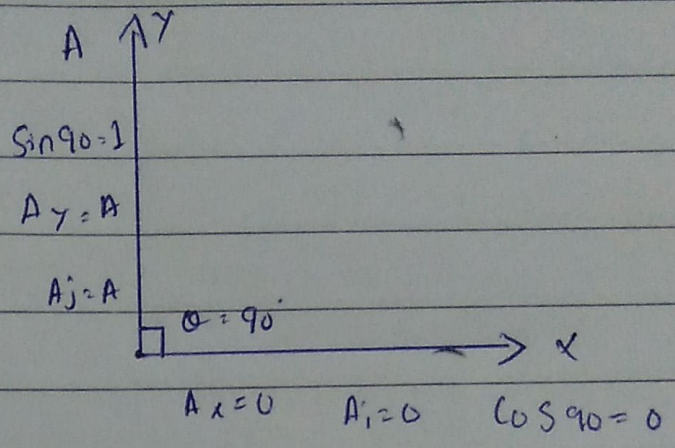 A Y
Sin 90 = 1
Ay = A
Aj = A
θ = 90°
X
Ax = 0 Ai = 0 Cos 90 = 0